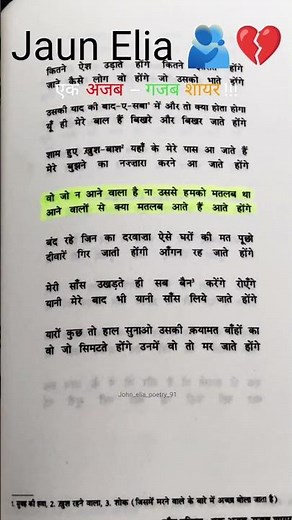 Jaun Elia 🫂💔
कितने ऐश उड़ाते होंगे कितने होंगे
जाने कैसे लोग वो होंगे जो उसको भाते होंगे
एक अजब – गजब शायर !!!
उसकी याद की बाद-ए-सबा¹ में और तो क्या होता होगा
यूँ ही मेरे बाल हैं बिखरे और बिखर जाते होंगे
शाम हुए ख़ुश-बाश² यहाँ के मेरे पास आ जाते हैं
मेरे बुझने का नज़्ज़ारा करने आ जाते होंगे
वो जो न आने वाला है ना उससे हमको मतलब था
आने वालों से क्या मतलब आते हैं आते होंगे
बंद रहे जिन का दरवाज़ा ऐसे घरों की मत पूछो
दीवारें गिर जाती होंगी आँगन रह जाते होंगे
मेरी साँस उखड़ते ही सब बैन³ करेंगे रोएँगे
यानी मेरे बाद भी यानी साँस लिये जाते होंगे
यारों कुछ तो हाल सुनाओ उसकी क़यामत बाँहों का
वो जो सिमटते होंगे उनमें वो तो मर जाते होंगे
John_elia_poetry_91
1. सुबह की हवा, 2. ख़ुश रहने वाला, 3. शोक (जिसमें मरने वाले के बारे में बोला जाता है)